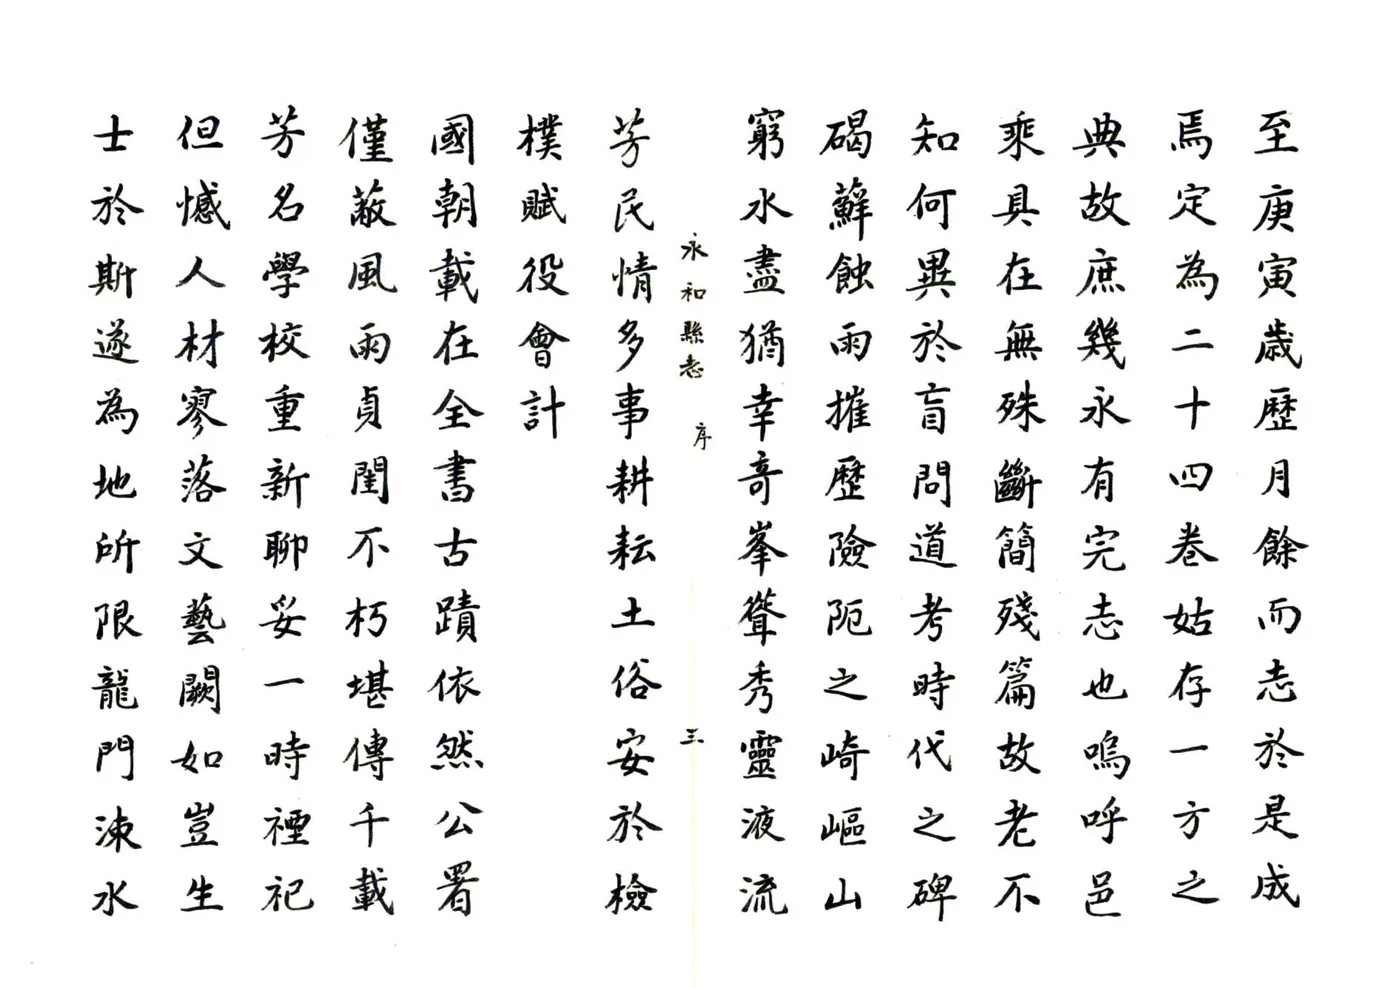 至庚寅歲歷月餘而志於是成
焉定為二十四卷姑存一方之
典故庶幾永有完志也嗚呼邑
乘具在無殊斷簡殘篇故老不
知何異於盲問道考時代之碑
碣蘚蝕雨摧歷險阨之崎嶇山
窮水盡猶幸奇峯聳秀靈液流
永和縣志 序 三
芳民情多事耕耘土俗安於檢
樸賦役會計
國朝載在全書古蹟依然公署
僅蔽風雨貞閨不朽堪傳千載
芳名學校重新聊妥一時禋祀
但憾人材寥落文藝闕如豈生
士於斯遂為地所限龍門涑水